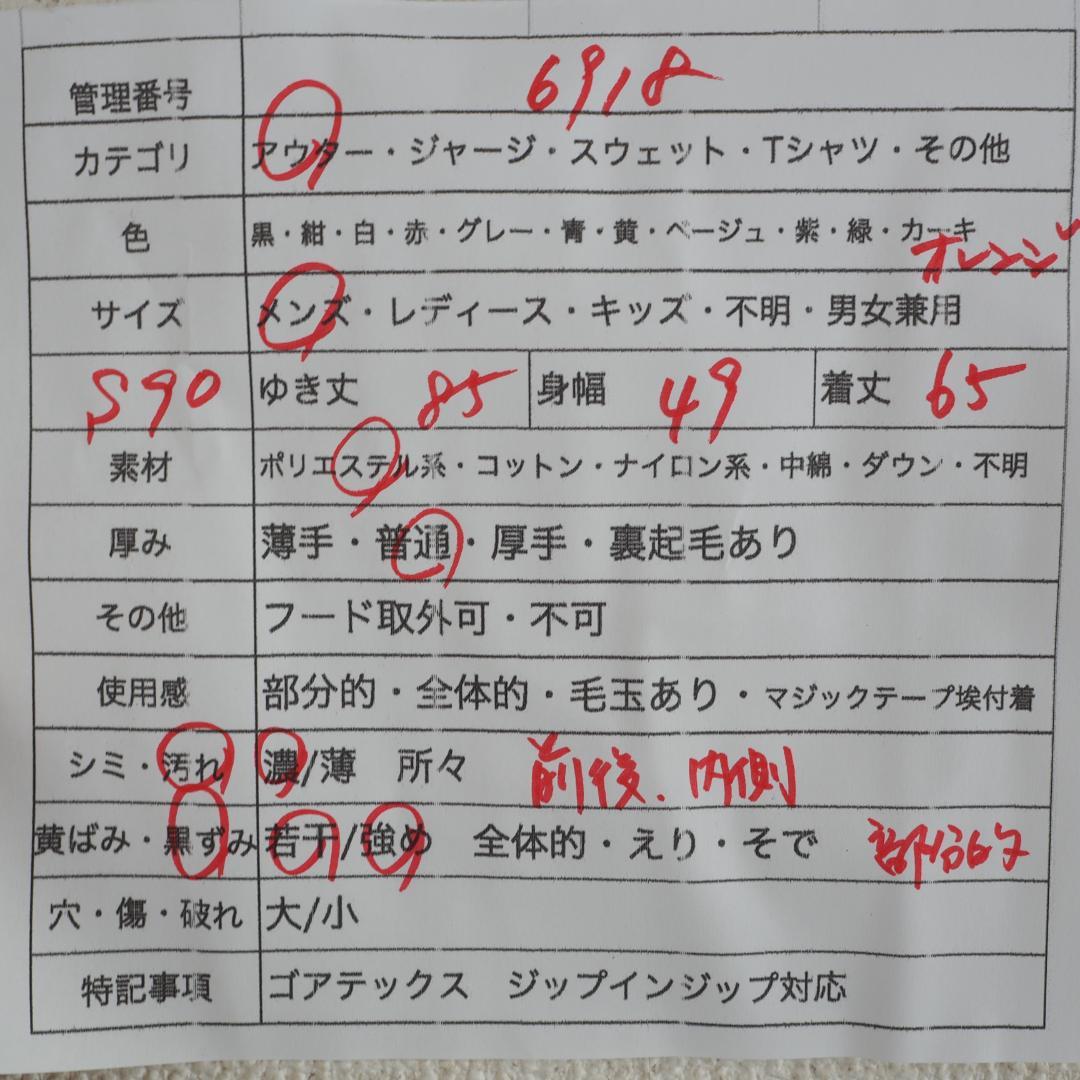 管理番号 6918
カテゴリ アウター・ジャージ・スウェット・Tシャツ・その他
色 黒・紺・白・赤・グレー・青・黄・ベージュ・紫・緑・カーキ
オレンジ
サイズ メンズ・レディース・キッズ・不明・男女兼用
S90 ゆき丈 85 身幅 49 着丈 65
素材 ポリエステル系・コットン・ナイロン系・中綿・ダウン・不明
厚み 薄手・普通・厚手・裏起毛あり
その他 フード取外可・不可
使用感 部分的・全体的・毛玉あり・マジックテープ埃付着
シミ・汚れ 濃/薄 所々 前後、内側
黄ばみ・黒ずみ 若干/強め 全体的・えり・そで 部分的
穴・傷・破れ 大/小
特記事項 ゴアテックス ジップインジップ対応